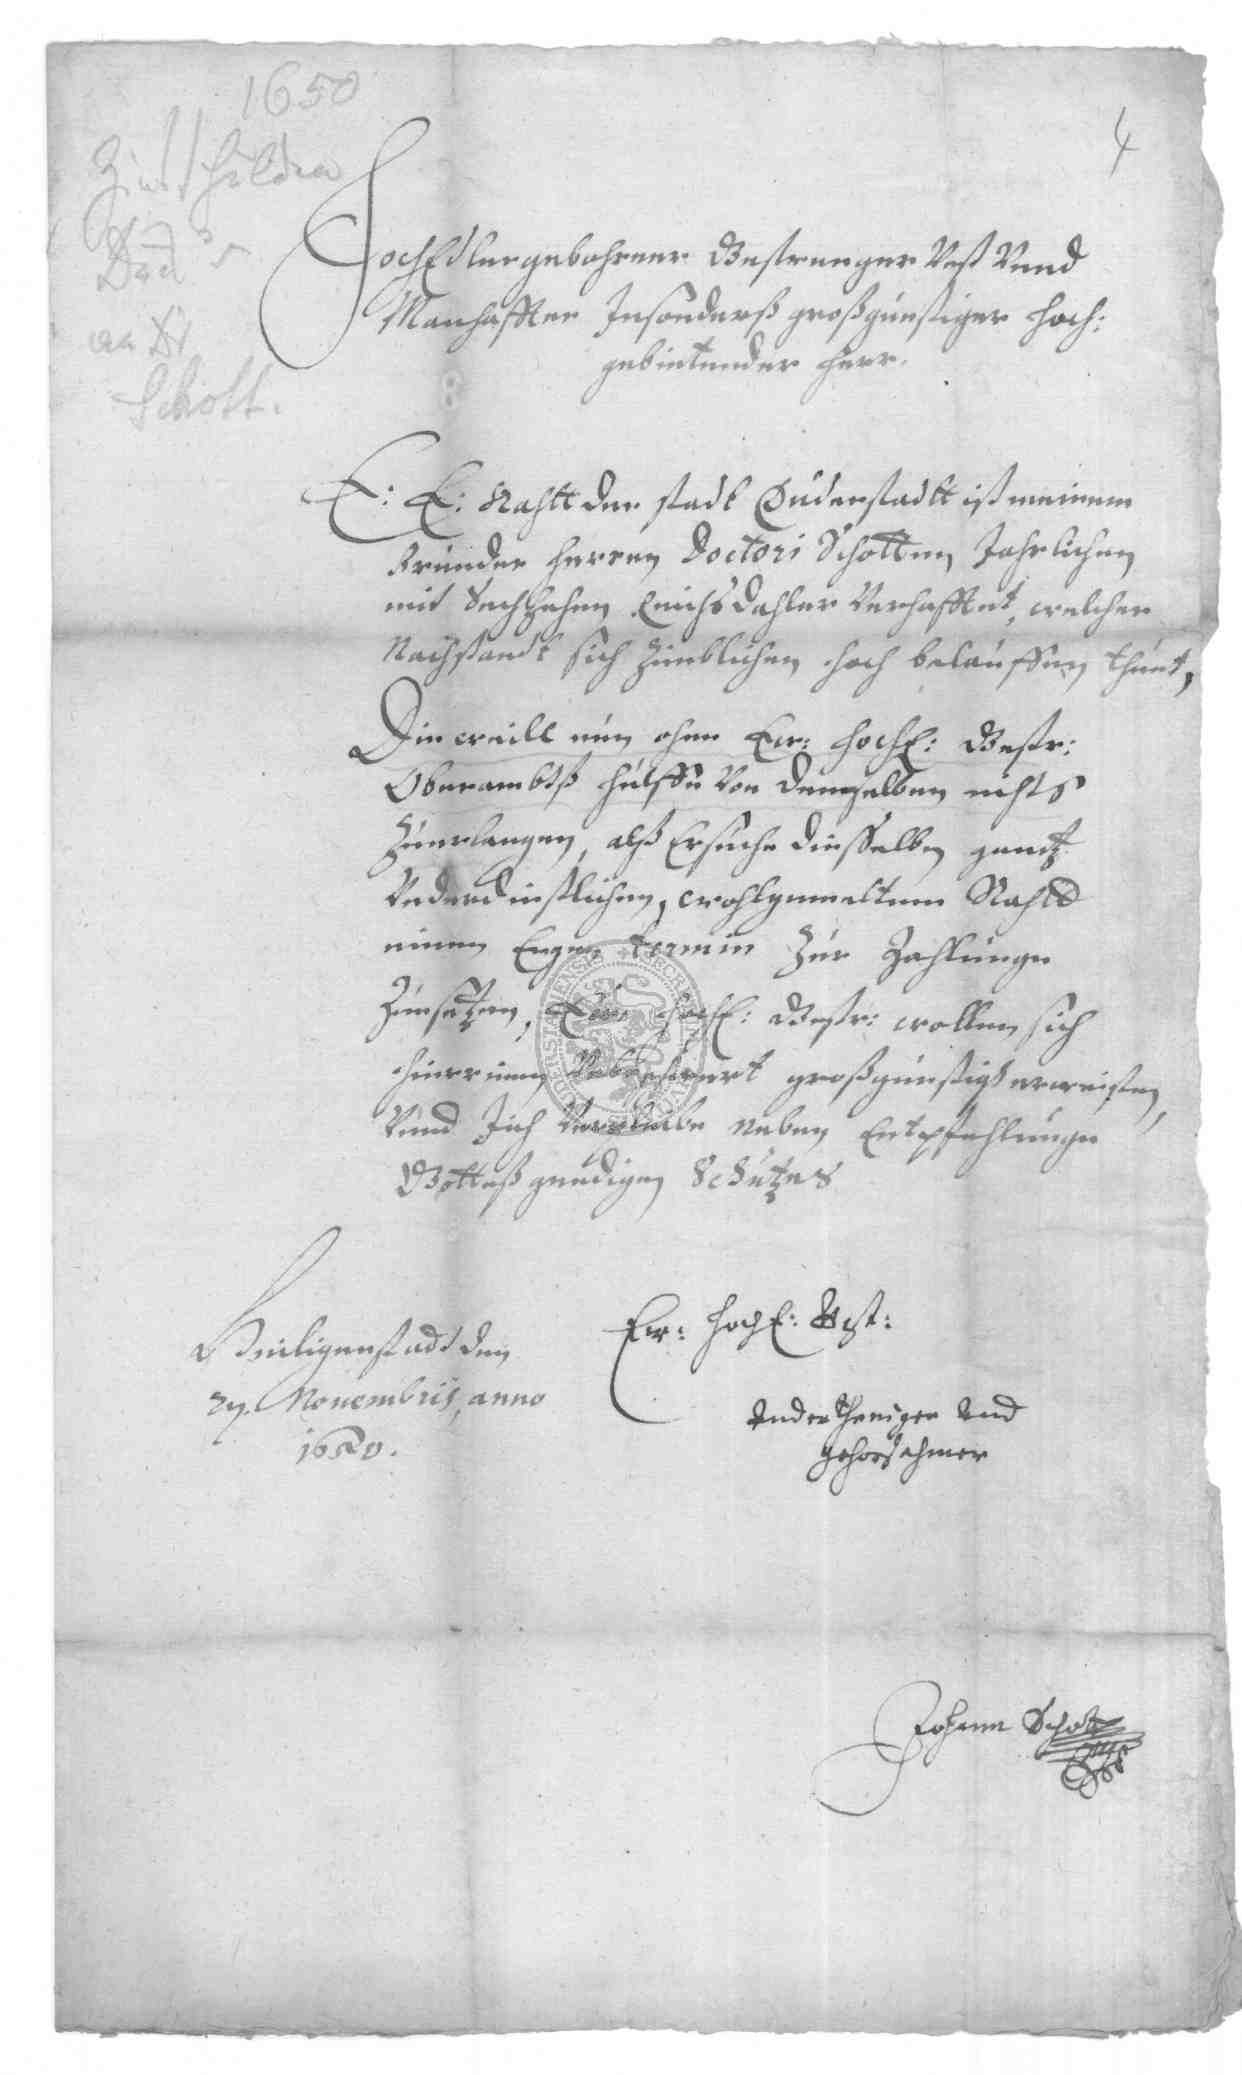 1650
4
Zinsschulden
Dud
an Dr
Schott.
HochEdlergebohrner Gestrenger Vest Vnnd
Manhaffter Insonderß großgünstiger Hoch:
gebietender Herr.
E: E: Rahtt der stadt Duderstadtt ist meinem
Bruder Herren Doctori Schotten Jahrlichen
mit Sechzehen Reichsdahler Verhafftet, welcher
Nachstandt sich Zimblichen hoch belauffen thuet,
Die weill nun ohne Ew: HochE: Gestr:
Oberambtß hülffe Von demselben nichts
Zuerlangen, alß Ersuche dieselben gantz
Vnderdinstlichen, wohlgemeltem Rahtt
einen Engen termin Zur Zahlunge
Zusetzen, Ew: HochE: Gestr: wollen sich
hierinnen großgünstigst erweisen,
Vnnd Ich Verpleibe neben Entpfehlunge
Gotteß gnedigen Schutzes
Heiligenstadt den
27. Nouembris, anno
1650.
Ew: HochE: Gest:
Vndertheniger Vnd
gehorsahmer
Johann Schott